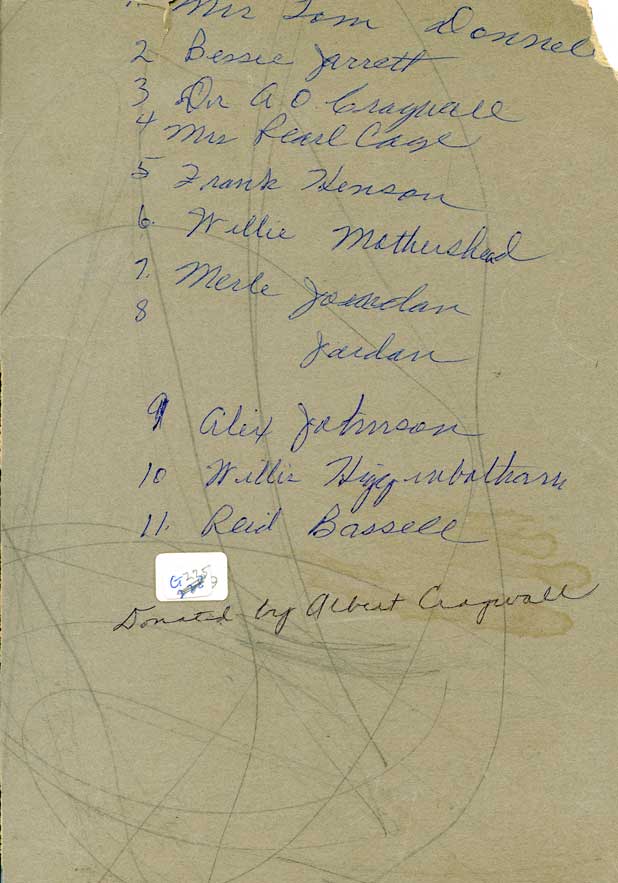 1. Mrs Tom Donnel
2 Bessie Jarrett
3 Dr A O Cragwall
4 Mrs Pearl Cage
5 Frank Henson
6. Willie Mothershead
7. Merle Jourdan
8 Jordan
9 Alex Johnson
10 Willis Higginbotham
11. Reid Bassell
G225
Donated by Albert Cragwall